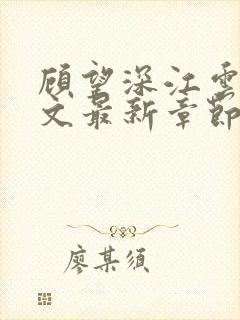 顾望深江雲
文最新章節
廖某须